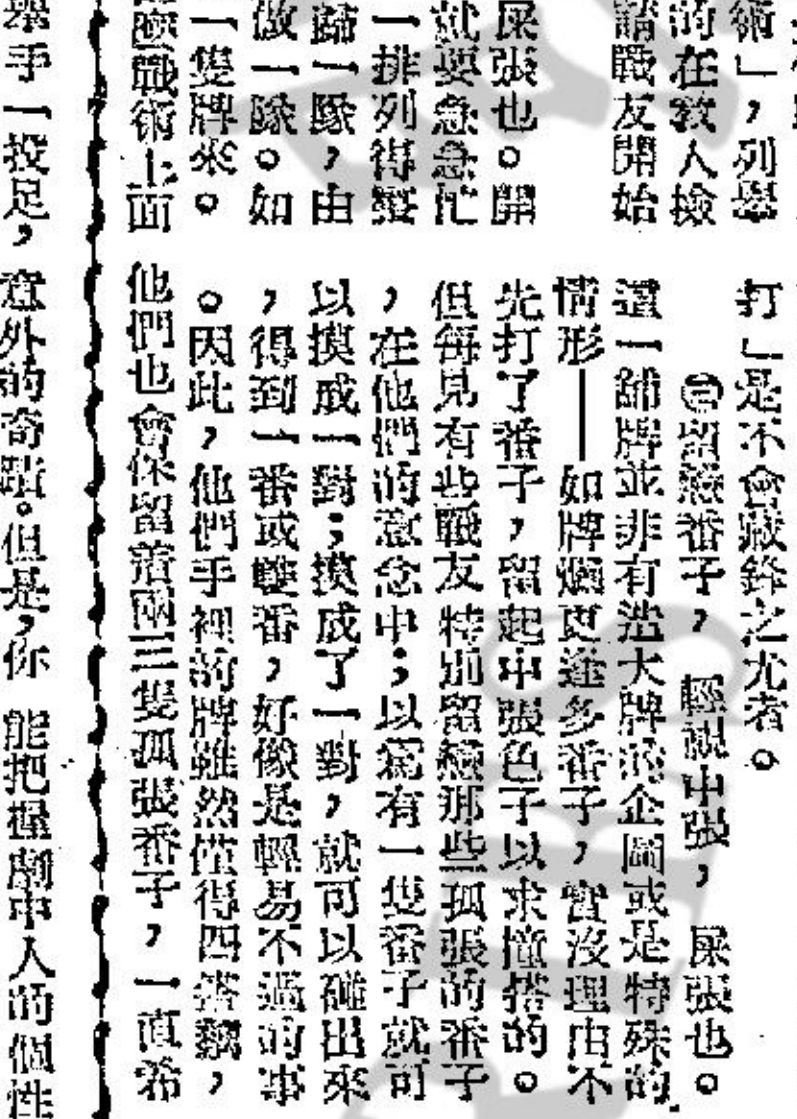 術」，列舉
的在教人撿
諸戰友開始
屎張也。開
就要急急忙
一排列得整
歸一隊，由
做一隊。如
一隻牌來。
戰術上面
打」是不會藏鋒之尤者。
㊂留戀番子，輕視中張，屎張也。
這一舖牌並非有造大牌的企圖或是特殊的
情形——如牌爛更逢多番子，當沒理由不
先打了番子，留起中張色子以求撞搭的。
但每見有些戰友特別留戀那些孤張的番子
，在他們的意念中；以為有一隻番子就可
以摸成一對；摸成了一對，就可以碰出來
，得到一番或雙番，好像是輕易不過的事
。因此，他們手裡的牌雖然僅得四搭飄，
他們也會保留着兩三隻孤張番子，一直希
舉手一投足，意外的奇蹟。但是，你能把握劇中人的個性